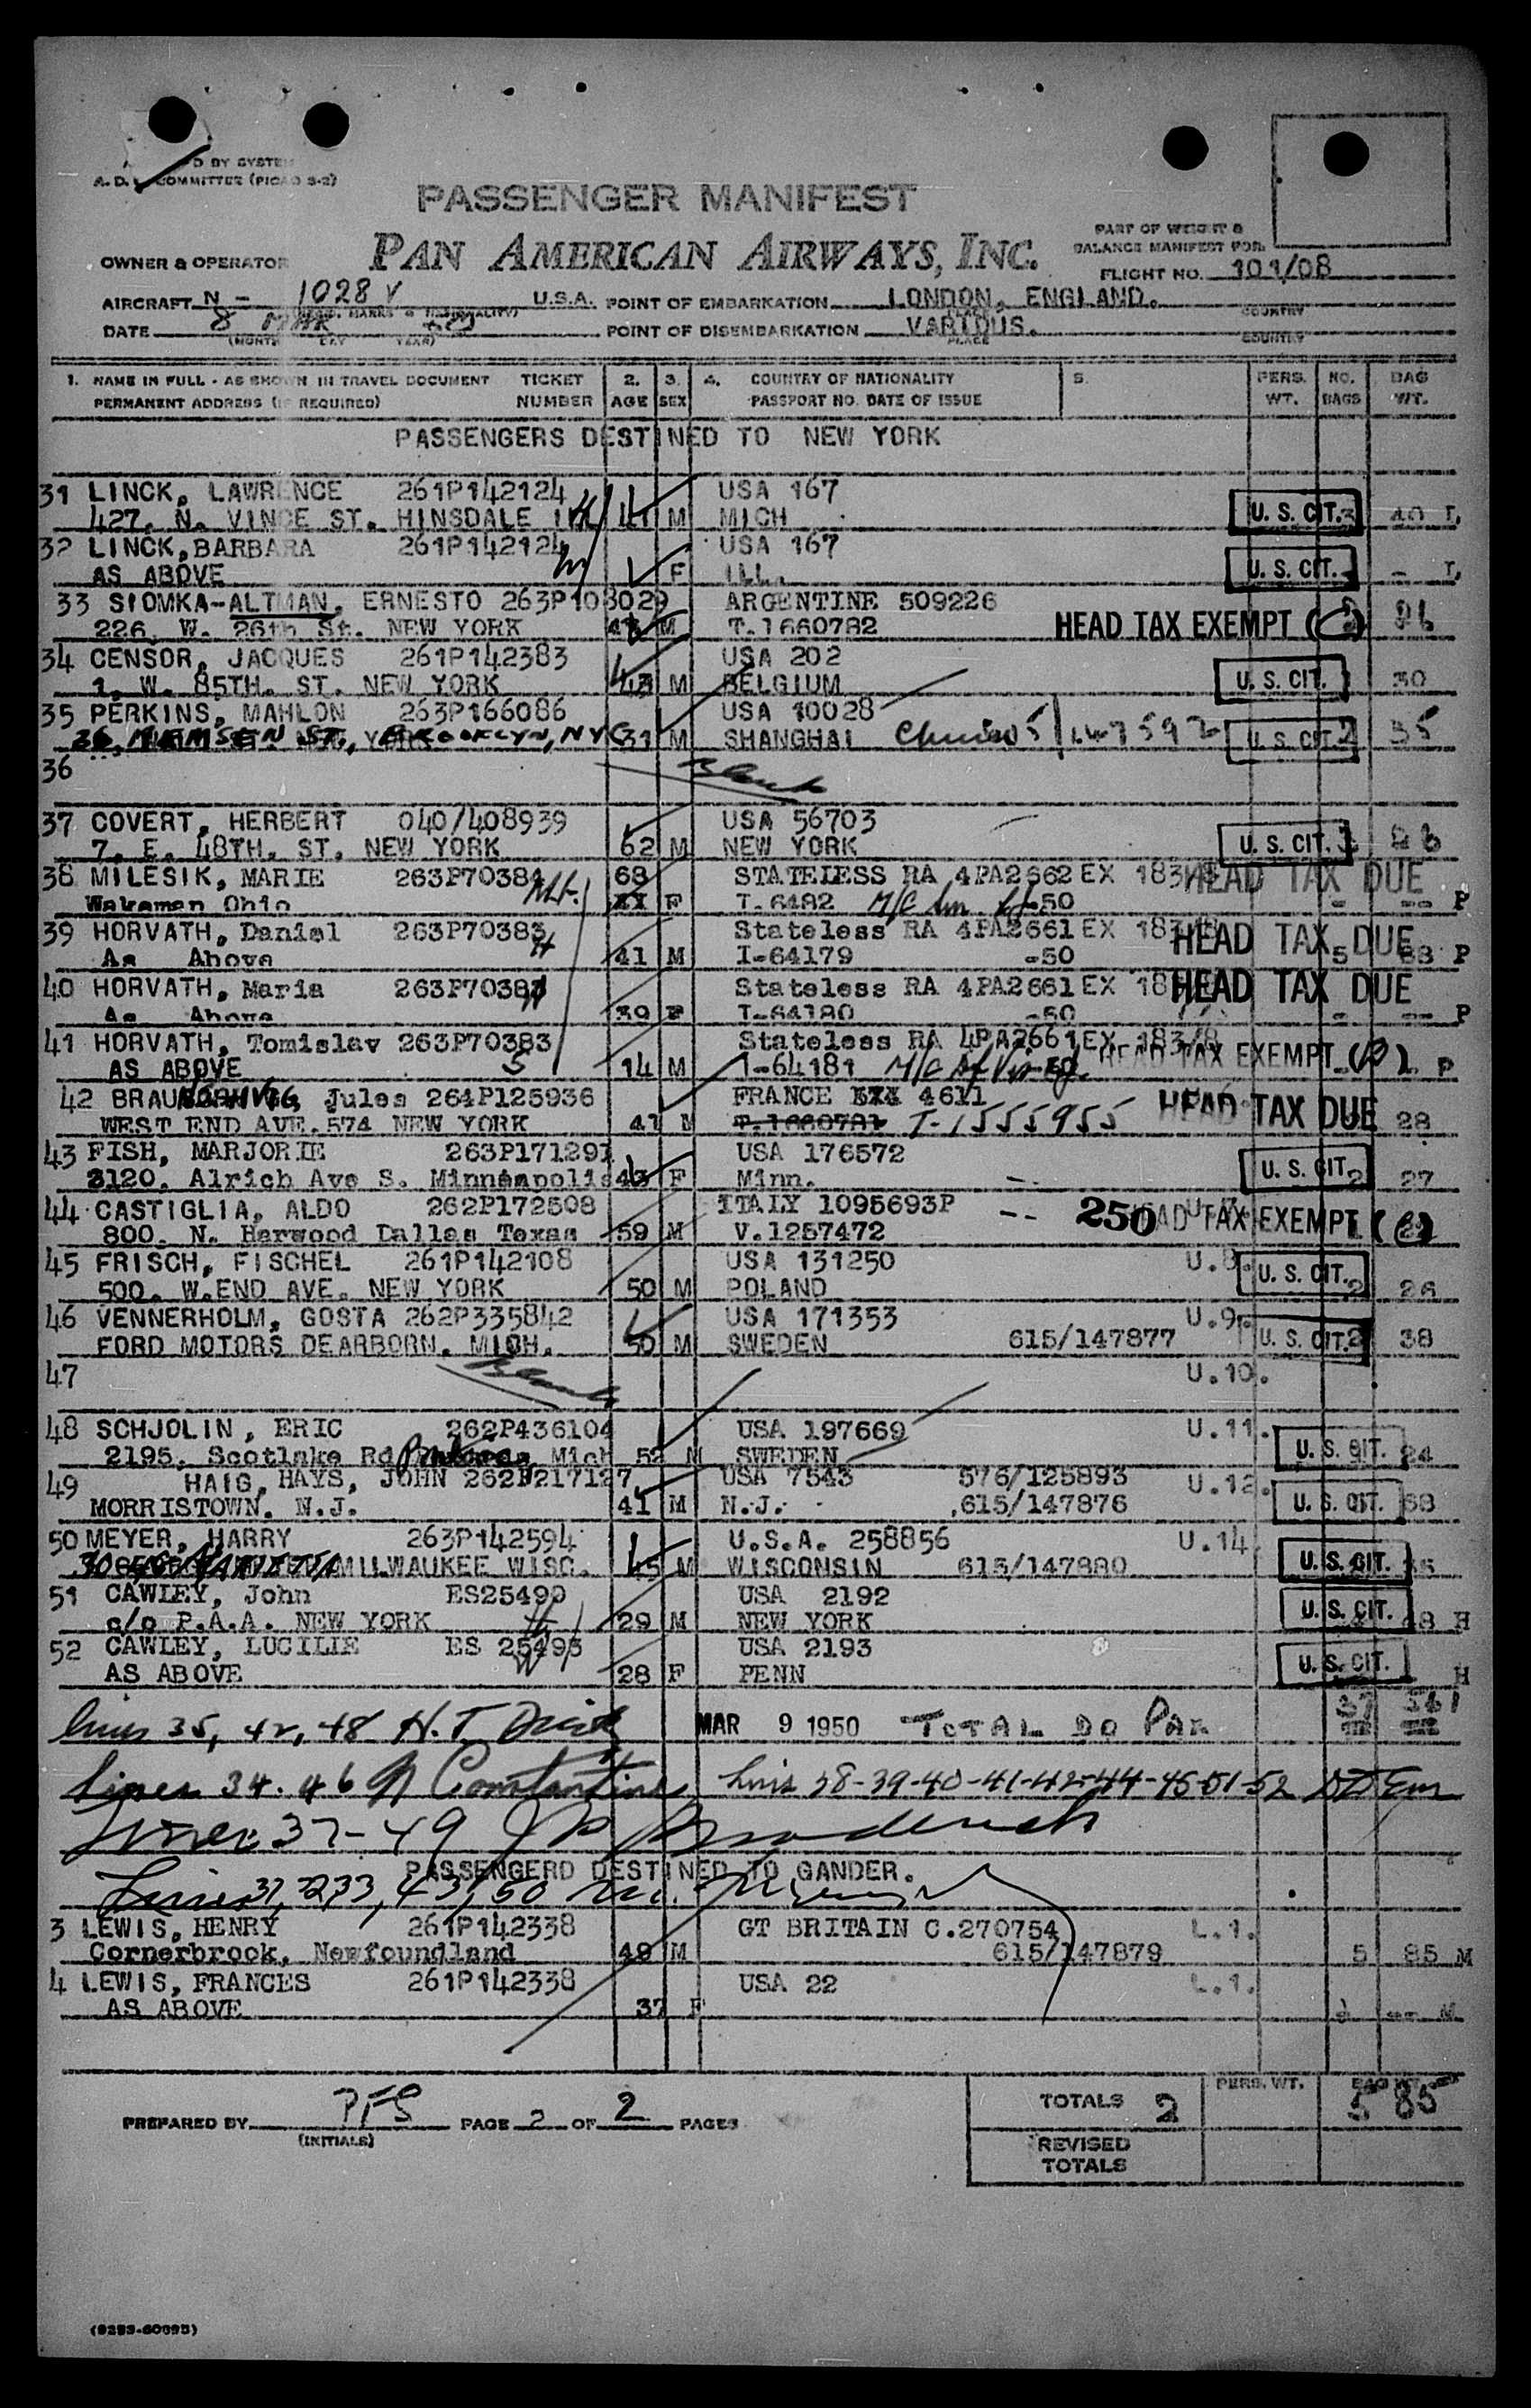 D BY SYSTE
A. D. COMMITTEE (PICAO S-2)
PASSENGER MANIFEST
PAN AMERICAN AIRWAYS, INC.
PART OF WEIGHT &
BALANCE MANIFEST FOR
OWNER & OPERATOR
FLIGHT NO. 101/08
AIRCRAFT N - 1028 V U.S.A. POINT OF EMBARKATION LONDON, ENGLAND.
COUNTRY
DATE 8 MAR POINT OF DISEMBARKATION VARIOUS.
(MONTH DAY YEAR) PLACE COUNTRY
1. NAME IN FULL - AS SHOWN IN TRAVEL DOCUMENT TICKET 2. 3. 4. COUNTRY OF NATIONALITY 5. PERS. NO. BAG
PERMANENT ADDRESS (IF REQUIRED) NUMBER AGE SEX PASSPORT NO. DATE OF ISSUE WT. BAGS WT.
PASSENGERS DESTINED TO NEW YORK
31 LINCK, LAWRENCE 261P142124 USA 167
427. N. VINCE ST. HINSDALE 41 M MICH U. S. CIT. 3 40 T,
32 LINCK, BARBARA 261P142124 USA 167
AS ABOVE F ILL. U. S. CIT. - - T,
33 SIOMKA-ALTMAN, ERNESTO 263P103029 ARGENTINE 509226
226. W. 26th St. NEW YORK M T.1660782 HEAD TAX EXEMPT (C)
34 CENSOR, JACQUES 261P142383 USA 202
1, W. 85TH. ST. NEW YORK 43 M BELGIUM U. S. CIT. 30
35 PERKINS, MAHLON 263P166086 USA 10028
36, REMSEN ST., BROOKLYN, NYC 31 M SHANGHAI U. S. CIT. 2 35
36 Blank
37 COVERT, HERBERT 040/408939 USA 56703
7. E. 48TH. ST. NEW YORK 62 M NEW YORK U. S. CIT.
38 MILESIK, MARIE 263P70384 68 STATELESS RA 4PA2662 EX 183/8 HEAD TAX DUE
Wakeman Ohio XX F T.6482 -50 - -- P
39 HORVATH, Daniel 263P70383 Stateless RA 4PA2661 EX 183/8 HEAD TAX DUE
As Above 41 M I-64179 -50 5 88 P
40 HORVATH, Maria 263P70383 Stateless RA 4PA2661 EX 18 HEAD TAX DUE
As Above 39 F I-64180 -50 - -- P
41 HORVATH, Tomislav 263P70383 Stateless RA 4PA2661 EX 183/8
AS ABOVE 14 M I-64181 HEAD TAX EXEMPT P
42 Jules 264P125936 FRANCE 4611
WEST END AVE. 574 NEW YORK 41 M T.1660781 T-1555955 HEAD TAX DUE 28
43 FISH, MARJORIE 263P171291 USA 176572
3120. Alrich Ave S. Minneapolis 43 F Minn. U. S. CIT. 2 27
44 CASTIGLIA, ALDO 262P172508 ITALY 1095693P
800. N. Harwood Dallas Texas 59 M V.1257472 -- 250 HEAD TAX EXEMPT (C)
45 FRISCH, FISCHEL 261P142108 USA 131250 U.8.
500. W.END AVE. NEW YORK 50 M POLAND U. S. CIT. 2 26
46 VENNERHOLM, GOSTA 262P335842 USA 171353 U.9.
FORD MOTORS DEARBORN. MICH. 50 M SWEDEN 615/147877 U. S. CIT. 2 38
47 Blank U.10.
48 SCHJOLIN, ERIC 262P436104 USA 197669 U.11.
2195. Scotlake Rd Mich 52 M SWEDEN U. S. CIT. 24
49 HAIG, HAYS, JOHN 262P217127 USA 7543 576/125893 U.12.
MORRISTOWN. N.J. 41 M N.J. 615/147876 U. S. CIT. 38
50 MEYER, HARRY 263P142594 U.S.A. 258856 U.14.
MILWAUKEE WISC. 45 M WISCONSIN 615/147880 U. S. CIT. 35
51 CAWLEY, John ES25490 USA 2192
c/o P.A.A. NEW YORK 29 M NEW YORK U. S. CIT. 48 H
52 CAWLEY, LUCILIE ES 25493 USA 2193
AS ABOVE 28 F PENN U. S. CIT. H
lines 35, 42, 48 H. T. MAR 9 1950 TOTAL DO PAX 37 561
Lines 34. 46 Constantine lines 38-39-40-41-42-44-45-51-52
Lines 37-49 Broderick
PASSENGERD DESTINED TO GANDER.
Lines 43, 50
3 LEWIS, HENRY 261P142338 GT BRITAIN C.270754 L.1.
Cornerbrook, Newfoundland 49 M 615/147879 5 85 M
4 LEWIS, FRANCES 261P142338 USA 22 L.1.
AS ABOVE 37 F -- M
PREPARED BY PFS PAGE 2 OF 2 PAGES
(INITIALS)
TOTALS 2 PERS. WT. 5 85
REVISED
TOTALS